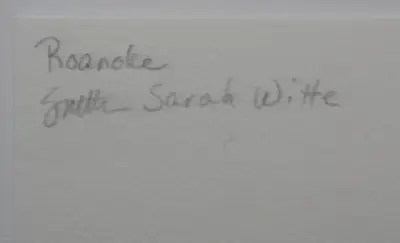 Roanoke
Smith Sarah Witte